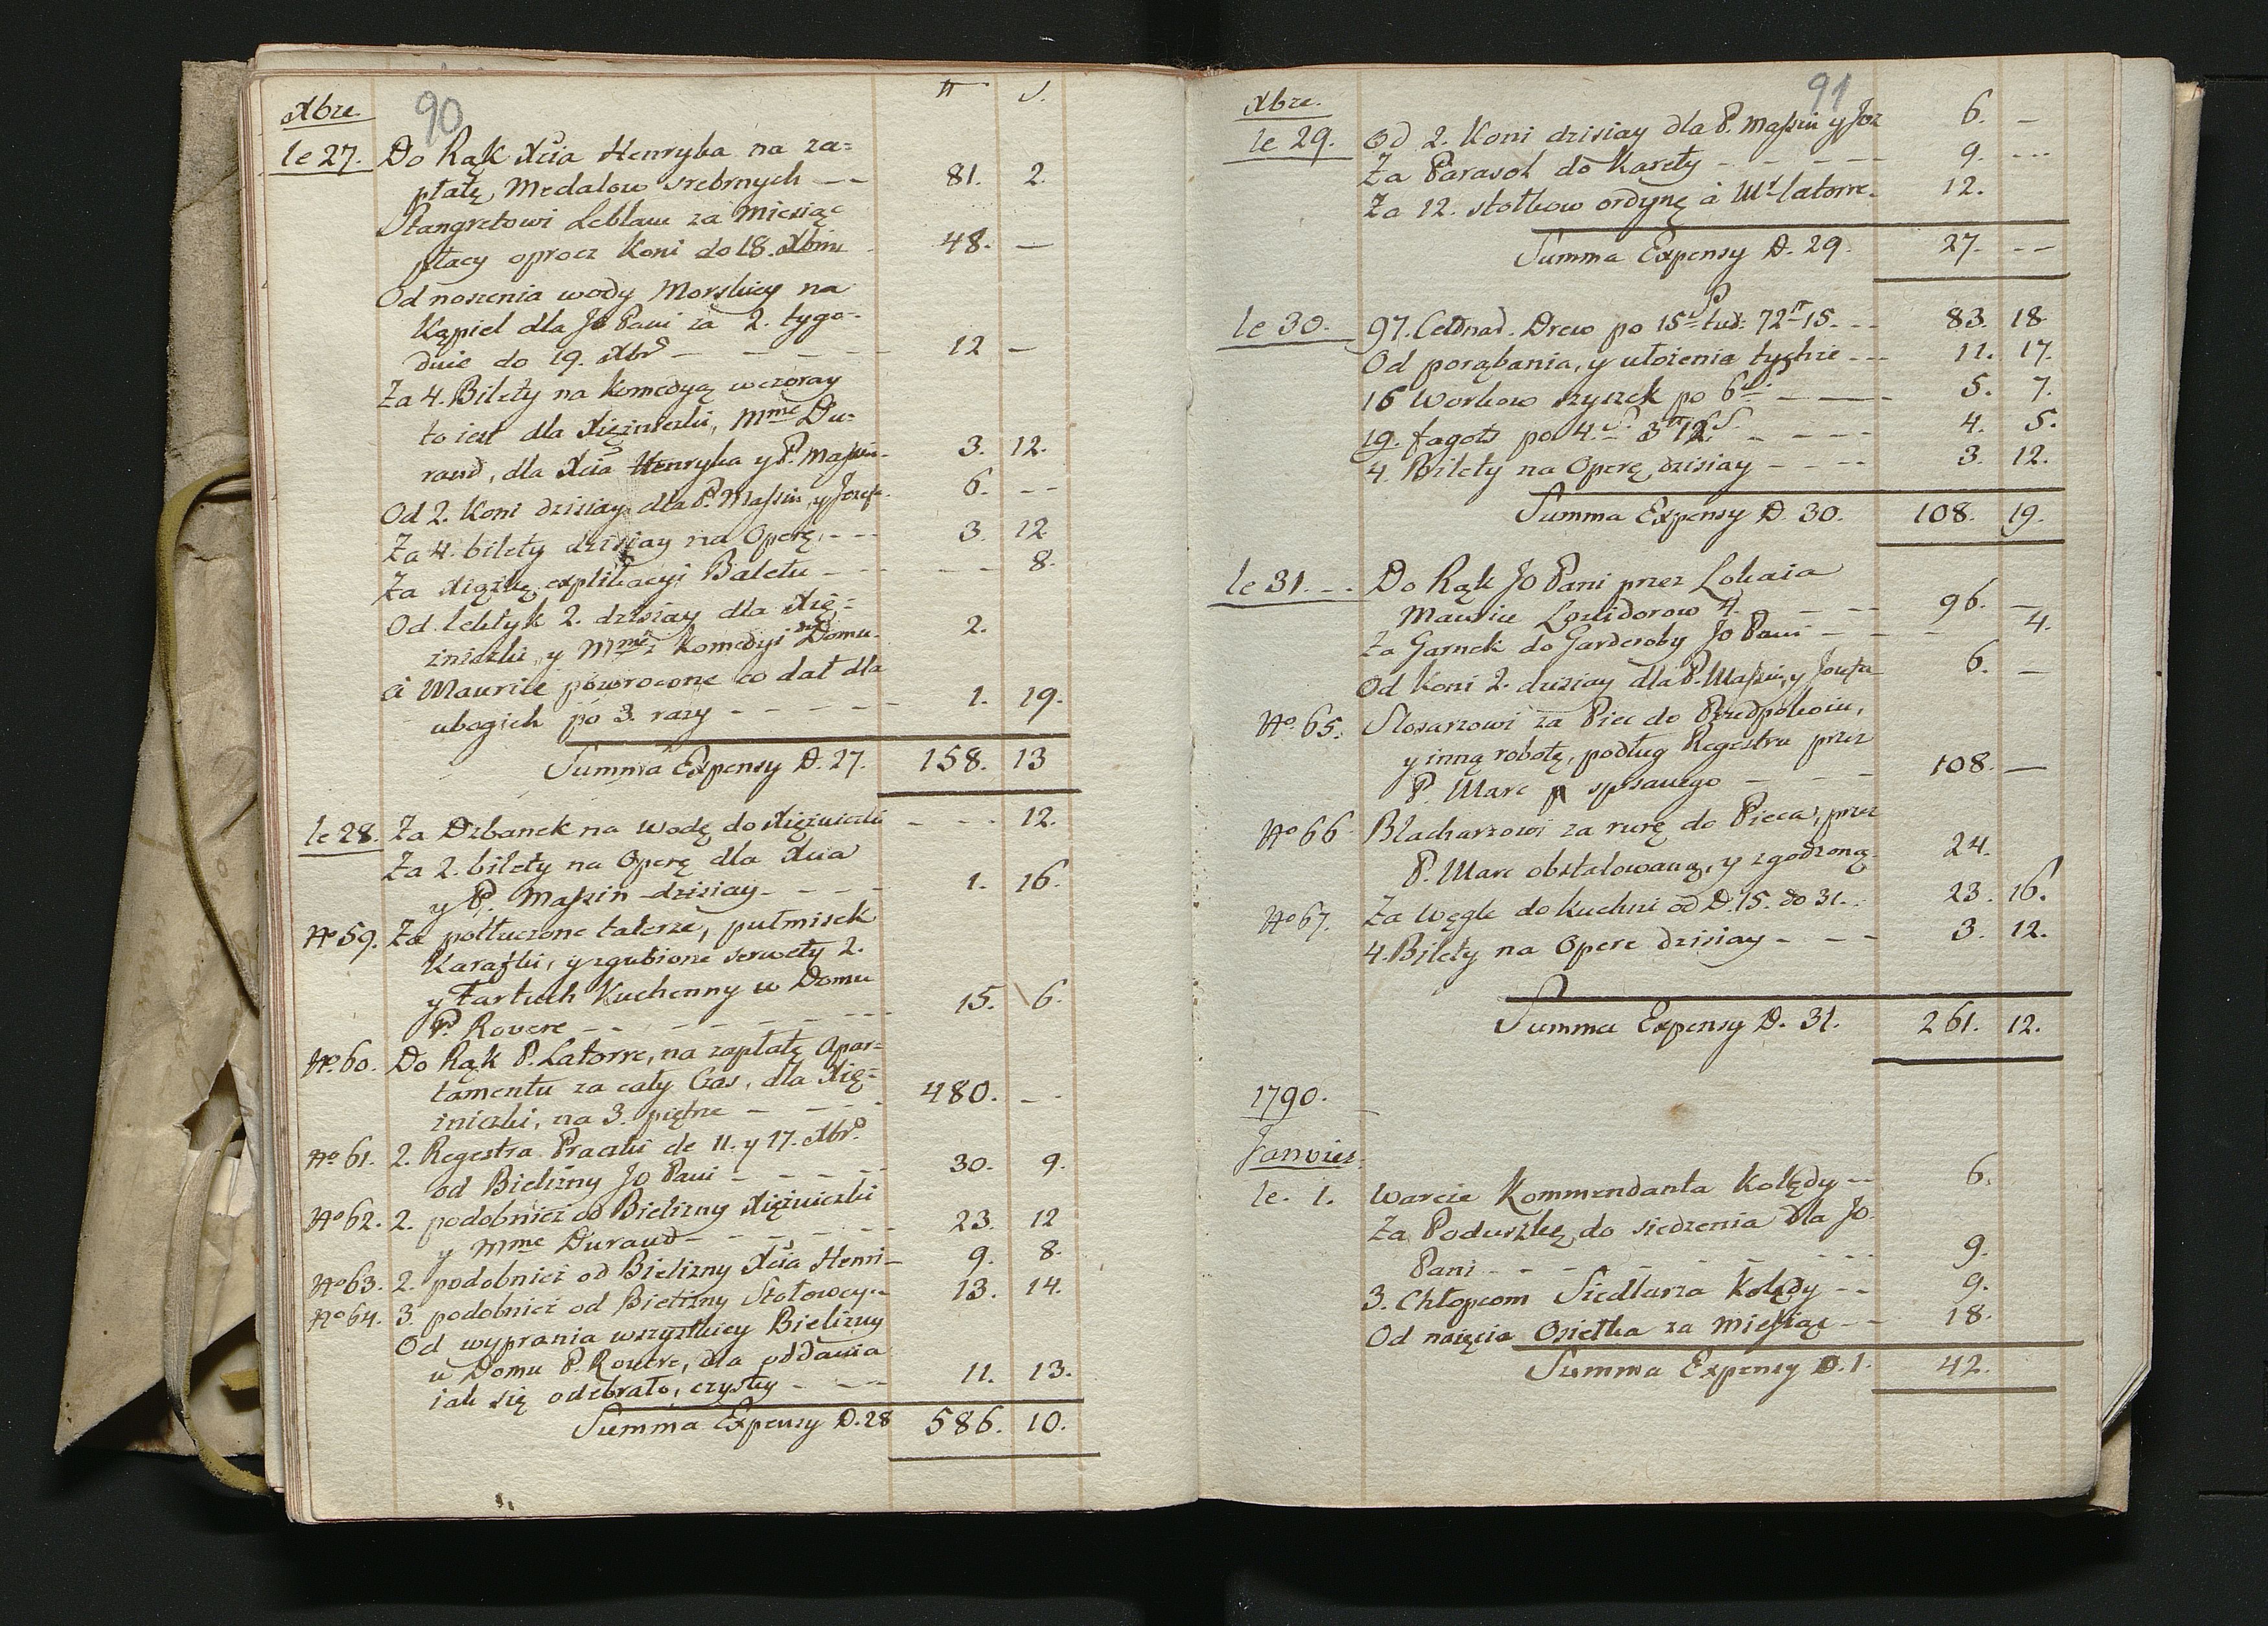 90
Xbre. ₶ S.
le 27. Do Rąk Xcia Henryka na za=
płatę Medalow srebrnych -- 81. 2.
Stangretowi Leblanc za Miesiąc
płacy oprocz Koni do 18. Xbris 48. —
Od noszenia wody Morskiey na
Kąpiel dla Jo Pani za 2. tygo-
dnie do 19. Xbr 12 —
Za 4. Bilety na Komedyą wczoray
to iest dla Xiężniczki, Mme Du-
rand, dla Xcia Henryka y P. Maszin- 3. 12.
Od 2. Koni dzisiay dla P. Maszin, y Jozefa. 6. --
Za 4. bilety dzisiay na Operę, --- 3. 12
Za Xiążkę explikacyi Baletu - - - 8.
Od lektyk 2. dzisiay dla Xię=
żniczki, y Mme z Komedyi do Domu. 2.
à Maurice powrocone co dał dla
ubogich po 3. razy - - - - - 1. 19.
Summa Expensy D. 27. 158. 13
le 28. Za Dzbanek na Wodę do Xiężniczki - - - 12.
Za 2. bilety na Operę dla Xcia
y P. Maszin dzisiay. - - - - 1. 16.
No 59. Za potłuczone talerze, pułmisek
Karafki, y zgubione serwety 2.
y Fartuch Kuchenny w Domu
P. Rovere - - - - - - 15. 6.
No. 60. Do Rąk P. Latorre, na zapłatę Apar=
tamentu za cały Czas, dla Xię=
żniczki, na 3. piętrze - - - - 480. - -
No 61. 2. Regestra Praczki de 11. y 17. Xbr
od Bielizny Jo Pani - - - - 30. 9.
No 62. 2. podobnież od Bielizny Xiężniczki
y Mme Durand - - - - 23. 12
No 63. 2. podobnież od Bielizny Xcia Henri- 9. 8.
No 64. 3. podobnież od Bielizny Stołowey.. 13. 14.
Od wyprania wszystkiey Bielizny
w Domu P. Rovere, dla oddania
iak się odebrało, czysty - - - 11. 13.
Summa Expensy D. 28 586. 10.
91
Xbre.
le 29. Od 2. Koni dzisiay dla P. Maszin y Joz 6. —
Za Parasol do Karety - - - - - 9. ---
Za 12. stołkow ordynę à Mr latorre. 12.
Summa Expensy D. 29. 27. --
le 30. 97. Cetnar. Drew po 15 S tud: 72 ₶ 15. -- 83. 18
Od porąbania, y ułożenia tychże --- 11. 17.
16 Workow szyszek po 6 - - - 5. 7.
19. fagots po 4. S. 3 ₶ 12 S. - - - - 4. 5.
4. Bilety na Operę dzisiay - - - - 3. 12.
Summa Expensy D. 30. 108. 19.
le 31. -- Do Rąk Jo Pani przez Lokaia
Maurice Louidorow 4. - - - 96. —
Za Garnek do Garderoby Jo Pani - - - 4.
Od Koni 2. dzisiay dla P. Maszin, y Jozefa 6. —
No. 65. Slosarzowi za Piec do Przedpokoiu,
y inną robotę, podług Regestru przez
P. Marc spisanego - - - - 108. —
No 66 Blacharzowi za rurę do Pieca, przez
P. Marc obstalowaną, y zgodzoną. 24.
No 67. Za Węgle do Kuchni od D. 15. do 31. . 23. 16.
4. Bilety na Opere dzisiay - - - 3. 12.
Summa Expensy D. 31. 261. 12.
1790.
Janvier.
le. 1. Warcie Kommendanta Kolędy -- 6.
Za Poduszkę do siedzenia dla Jo
Pani - - - - - - - 9.
3. Chłopcom Siedlarza Kolędy -- 9.
Od naięcia Osiełka za Miesiąc -- 18.
Summa Expensy D. 1. 42.